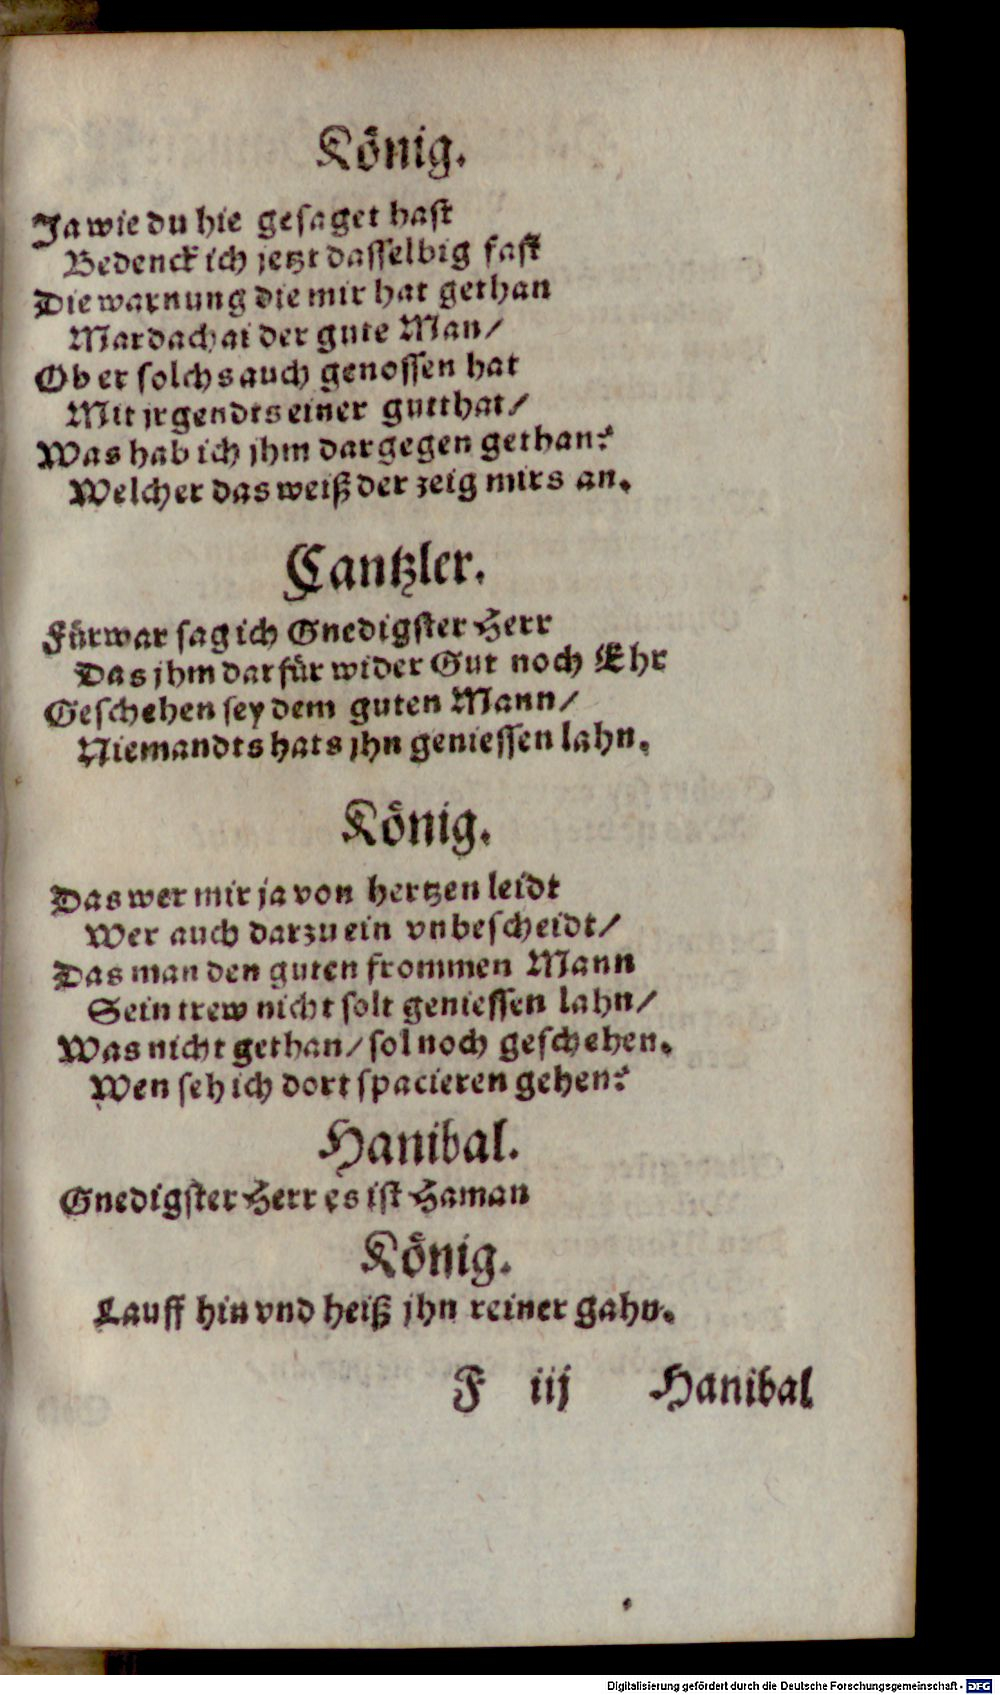 König.
Ja wie du hie gesaget hast
Bedenck ich jetzt dasselbig fast
Die warnung die mir hat gethan
Mardachai der gute Man/
Ob er solchs auch genossen hat
Mit jrgendts einer gutthat/
Was hab ich jhm dargegen gethan?
Welcher das weiß der zeig mirs an.
Cantzler.
Fürwar sag ich Gnedigster Herr
Das jhm darfür wider Gut noch Ehr
Geschehen sey dem guten Mann/
Niemandts hats jhn geniessen lahn.
König.
Das wer mir ja von hertzen leidt
Wer auch darzu ein vnbescheidt/
Das man den guten frommen Mann
Sein trew nicht solt geniessen lahn/
Was nicht gethan/ sol noch geschehen.
Wen seh ich dort spacieren gehen?
Hanibal.
Gnedigster Herr es ist Haman
König.
Lauff hin vnd heiß jhn reiner gahn.
F iij Hanibal
Digitalisierung gefördert durch die Deutsche Forschungsgemeinschaft - DFG